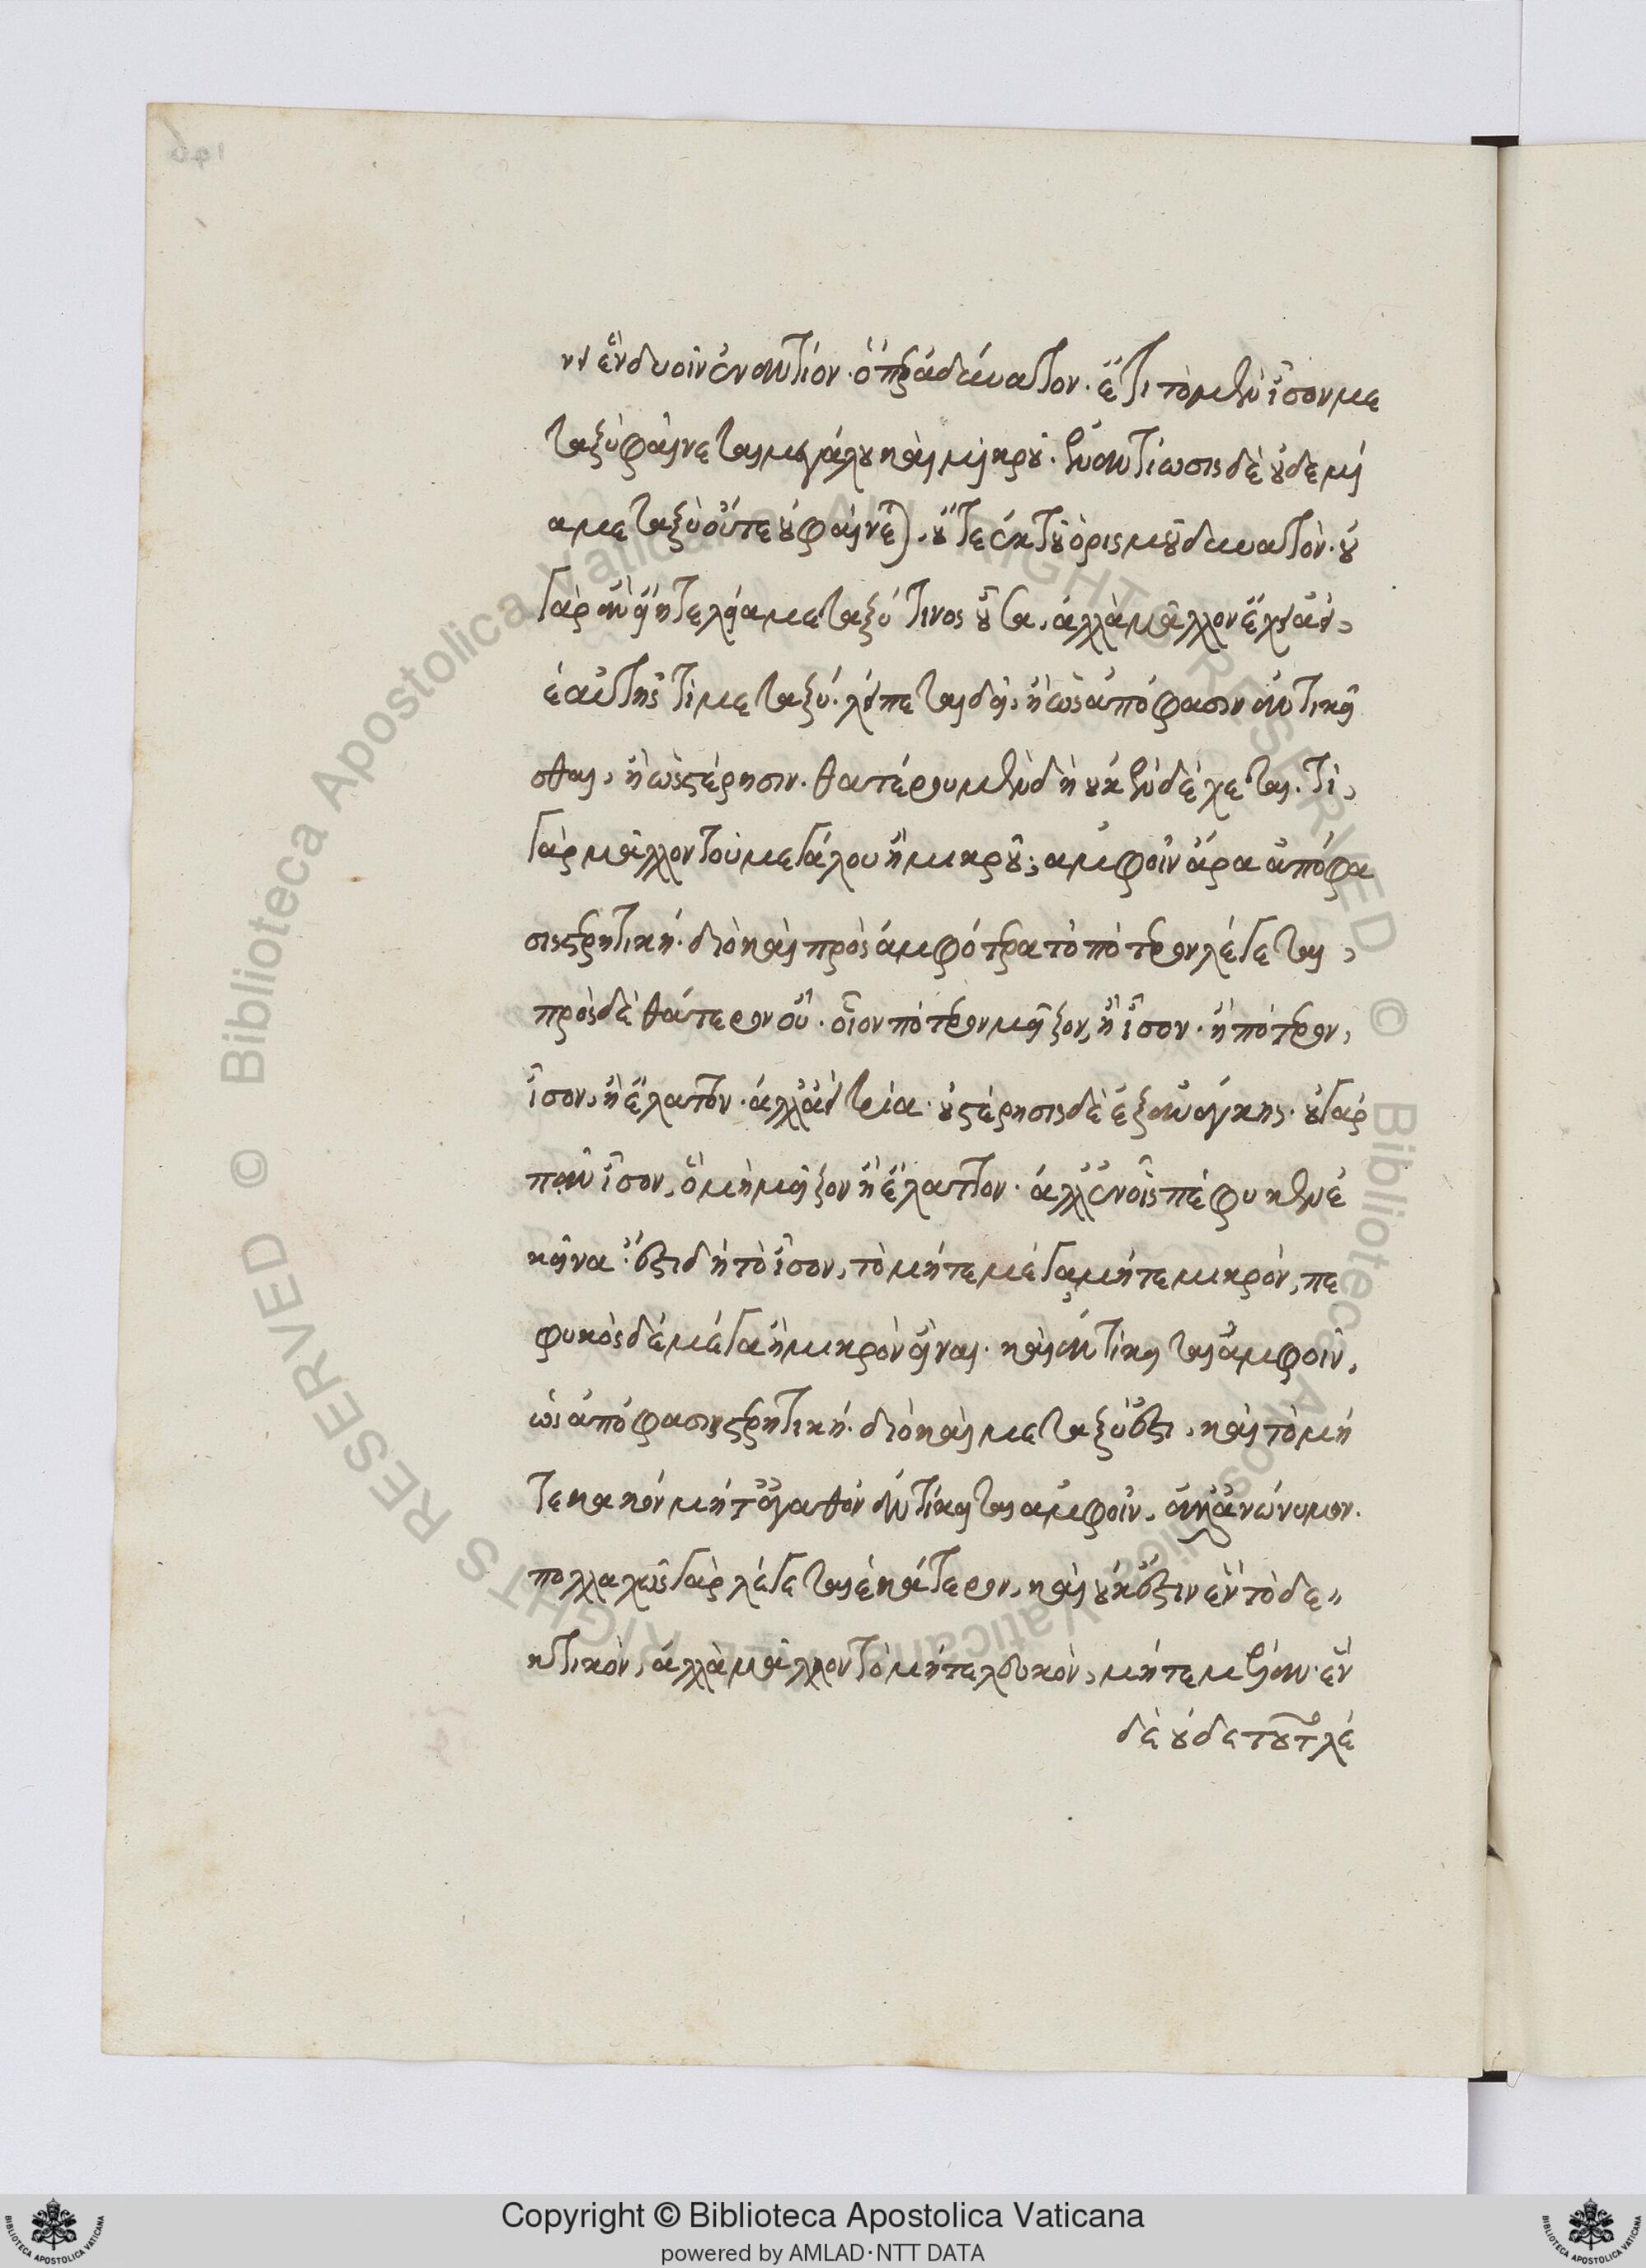 νει ἓν δυοῖν ἐναντίον· ὅπερ ἀδύνατον. ἔτι τὸ μὲν ἴσον με
ταξὺ φαίνεται μεγάλου καὶ μικροῦ. ἐναντίωσις δὲ οὐδεμί
α μεταξὺ οὔτε οὐ φαίνεται, οὔτε ἐκ τοῦ ὁρισμοῦ δυνατόν· οὐ
γὰρ ἂν εἴη τελεία μεταξύ τινος οὖσα, ἀλλὰ μᾶλλον ἔχει ἀεὶ,
ἑαυτῆς τὶ μεταξύ. λείπεται δὴ, ἢ ὡς ἀπόφασιν ἀντικεῖ
σθαι, ἢ ὡς στέρησιν. θατέρου μὲν δὴ οὐκ ἐνδέχεται. τί,
γὰρ μᾶλλον τοῦ μεγάλου ἢ μικροῦ; ἀμφοῖν ἄρα ἀπόφα
σις στερητική. διὸ καὶ πρὸς ἀμφότερα τὸ πότερον λέγεται,
πρὸς δὲ θάτερον οὔ. οἷον πότερον μεῖζον, ἢ ἴσον. ἢ πότερον,
ἴσον, ἢ ἔλαττον. ἀλλ' ἀεὶ τρία. οὐ στέρησις δὲ ἐξ ἀνάγκης. οὐ γὰρ
πᾶν ἴσον, ὃ μὴ μεῖζον ἢ ἔλαττον. ἀλλ' ἐν οἷς πέφυκεν ἐ
κεῖνα. ἔστι δὴ τὸ ἴσον, τὸ μήτε μέγα μήτε μικρόν, πε
φυκὸς δὲ μέγα ἢ μικρὸν εἶναι. καὶ ἀντίκειται ἀμφοῖν,
ὡς ἀπόφασις στερητική. διὸ καὶ μεταξύ ἐστι, καὶ τὸ μή
τε κακὸν μήτ' ἀγαθὸν ἀντίκειται ἀμφοῖν, ἀλλ' ἀνώνυμον.
πολλαχῶς γὰρ λέγεται ἑκάτερον, καὶ οὐκ ἔστιν ἓν τὸ δε
κτικόν, ἀλλὰ μᾶλλον τὸ μήτε λευκὸν, μήτε μέλαν. ἓν
δὲ οὐδὲ τοῦτο λέ
Copyright © Biblioteca Apostolica Vaticana
powered by AMLAD·NTT DATA